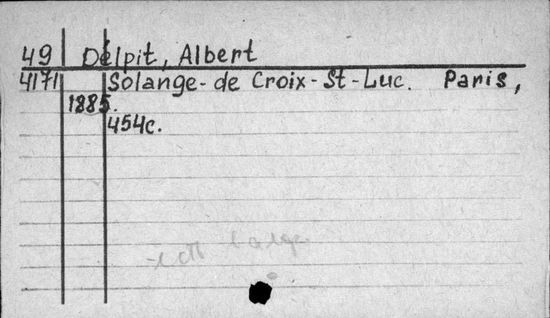 49 Delpit, Albert
4171 Solange-de Croix-St-Luc. Paris,
1885.
454c.